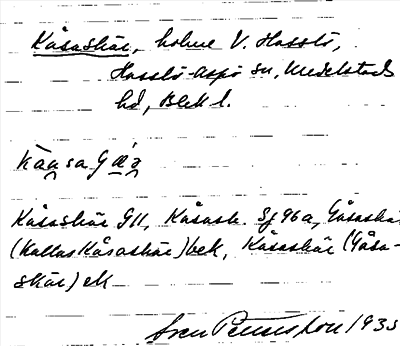 Kåsaskär, holme V. Hasslö,
Hasslö-Aspö sn, Medelstads
hd, Blek l.
Kåsaskär GII, Kåsask. Sj 96a, Gåsaskär
(Kallas Kåsaskär) bek, Kåsaskär (Gåsa-
skär) ek
Sven Benson 1935